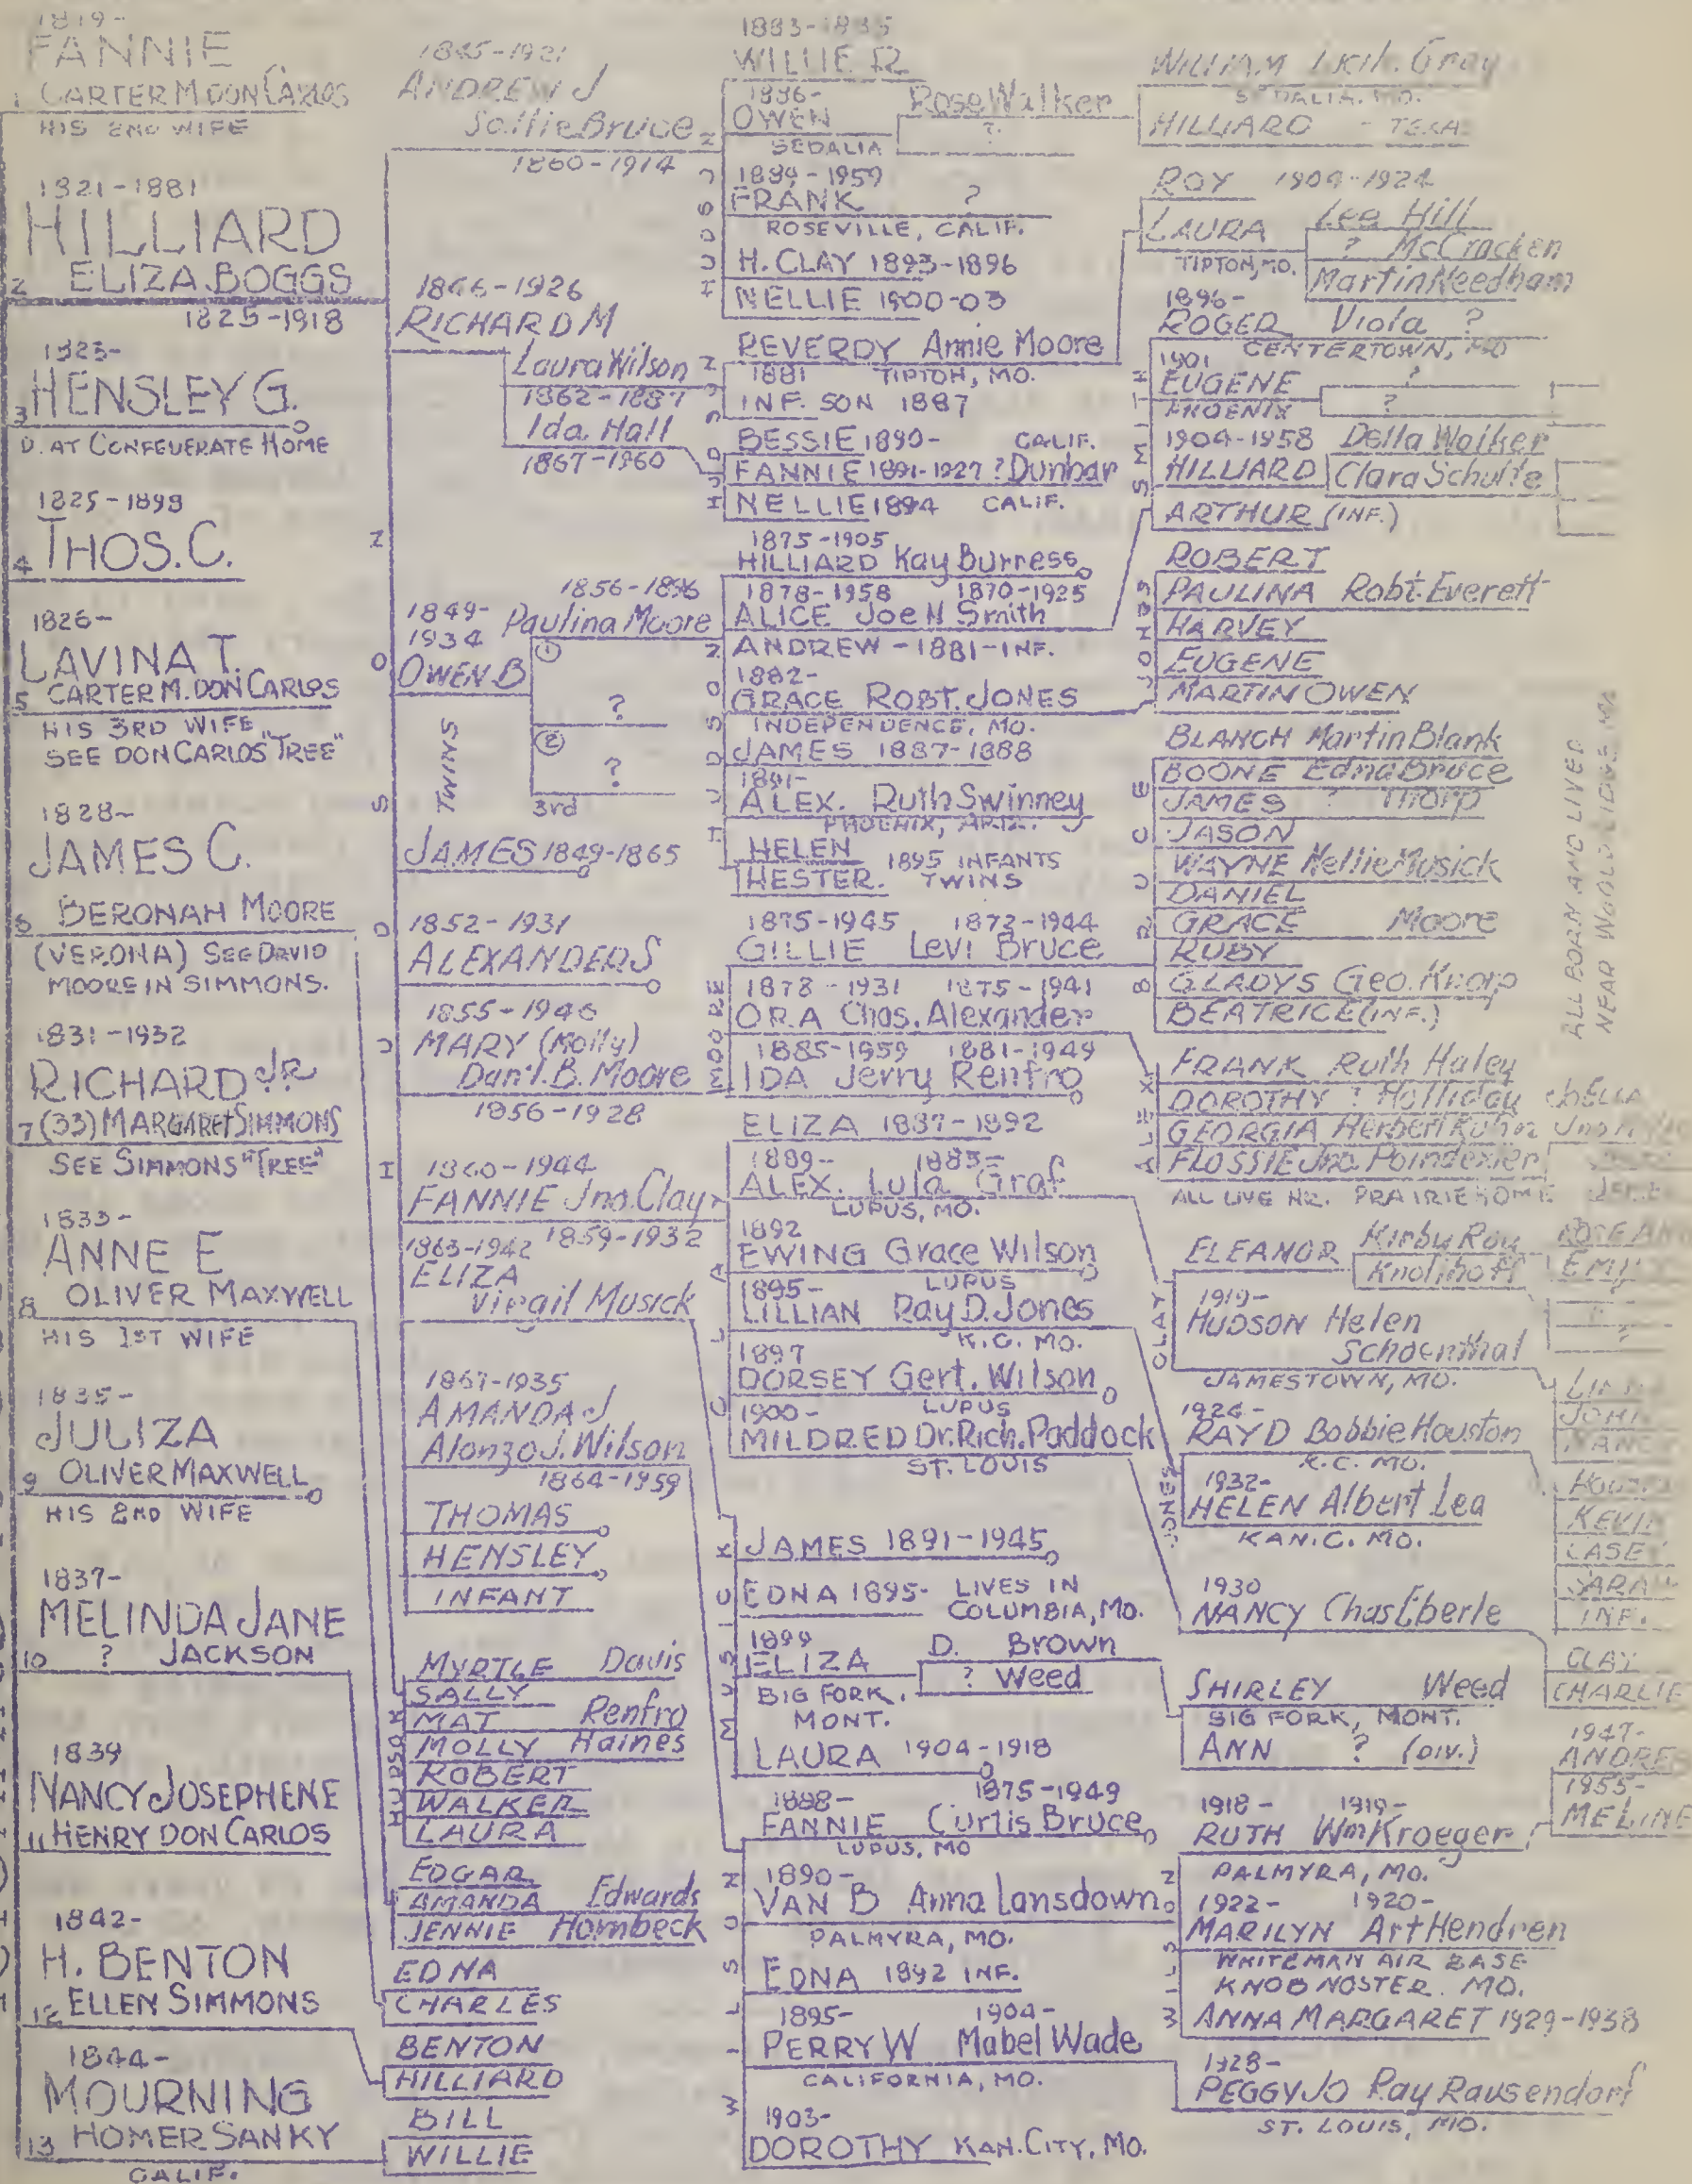 1819-
FANNIE
1 CARTER M DON CARLOS
HIS 2ND WIFE
1821-1881
HILLIARD
2 ELIZA BOGGS
1825-1918
1823-
HENSLEY G.
3
D. AT CONFEDERATE HOME
1825-1899
4 THOS. C.
1826-
LAVINA T.
5 CARTER M. DON CARLOS
HIS 3RD WIFE
SEE DON CARLOS "TREE"
1828-
JAMES C.
6 BERONAH MOORE
(VERONA) SEE DAVID
MOORE IN SIMMONS.
1831-1932
RICHARD JR
7 (33) MARGARET SIMMONS
SEE SIMMONS "TREE"
1833-
ANNE E
8 OLIVER MAXWELL
HIS 1ST WIFE
1835-
JULIZA
9 OLIVER MAXWELL
HIS 2ND WIFE
1837-
MELINDA JANE
10 ? JACKSON
1839
NANCY JOSEPHENE
11 HENRY DON CARLOS
1842-
H. BENTON
12 ELLEN SIMMONS
1844-
MOURNING
13 HOMER SANKY
CALIF.
HUDSON
1845-1921
ANDREW J
Sallie Bruce
1860-1914
1846-1926
RICHARD M
Laura Wilson
1862-1887
Ida Hall
1867-1960
1849-
1934
OWEN B
1856-1896
Paulina Moore
①
?
②
?
3rd
TWINS
JAMES 1849-1865
1852-1931
ALEXANDER S
1855-1946
MARY (Molly)
Dan'l. B. Moore
1856-1928
1860-1944
FANNIE Jno. Clay
1859-1932
1863-1942
ELIZA
Virgil Musick
1867-1935
AMANDA J
Alonzo J. Wilson
1864-1959
THOMAS
HENSLEY
INFANT
HUDSON
MYRTLE Davis
SALLY
MAT Renfro
MOLLY Haines
ROBERT
WALKER
LAURA
EDGAR
AMANDA Edwards
JENNIE Hornbeck
EDNA
CHARLES
BENTON
HILLIARD
BILL
WILLIE
HUDSON
1883-1885
WILLIE R
1886-
OWEN Rose Walker
?
SEDALIA
1889-1959
FRANK ?
ROSEVILLE, CALIF.
H. CLAY 1893-1896
NELLIE 1900-03
HUDSON
REVERDY Annie Moore
1881 TIPTON, MO.
INF. SON 1887
BESSIE 1890- CALIF.
FANNIE 1891-1927 ? Dunbar
NELLIE 1894 CALIF.
HUDSON
1875-1905
HILLIARD Kay Burress
1878-1958 1870-1925
ALICE Joe N Smith
ANDREW -1881-INF.
1882-
GRACE ROBT. JONES
INDEPENDENCE, MO.
JAMES 1887-1888
1891-
ALEX. Ruth Swinney
PHOENIX, ARIZ.
HELEN
HESTER.
1895 INFANTS
TWINS
MOORE
1875-1945 1872-1944
GILLIE Levi Bruce
1878-1931 1875-1941
ORA Chas. Alexander
1885-1959 1881-1949
IDA Jerry Renfro
CLAY
ELIZA 1887-1892
1889- 1885-
ALEX. Lula Graf
LUPUS, MO.
1892
EWING Grace Wilson
LUPUS
1895-
LILLIAN Ray D. Jones
K.C. MO.
1897
DORSEY Gert. Wilson
LUPUS
1900-
MILDRED Dr. Rich. Paddock
ST. LOUIS
MUSICK
JAMES 1891-1945
EDNA 1895- LIVES IN
COLUMBIA, MO.
1899
ELIZA D. Brown
? Weed
BIG FORK,
MONT.
LAURA 1904-1918
WILSON
1888- 1875-1949
FANNIE Curtis Bruce
LUPUS, MO
1890-
VAN B Anna Lansdown
PALMYRA, MO.
EDNA 1892 INF.
1895- 1904-
PERRY W Mabel Wade
CALIFORNIA, MO.
1903-
DOROTHY KAN. CITY, MO.
SEDALIA, MO.
HILLIARD - TEXA
ROY 1909-1924
LAURA Lee Hill
? McCracken
Martin Needham
TIPTON, MO.
SMITH
1896-
ROGER Viola ?
CENTERTOWN, MO
1901
EUGENE ?
?
PHOENIX
1904-1958 Della Walker
HILLIARD Clara Schulte
ARTHUR (INF.)
JONES
ROBERT
PAULINA Robt. Everett
HARVEY
EUGENE
MARTIN OWEN
BRUCE
BLANCH Martin Blank
BOONE Edna Bruce
JAMES ? Thorp
JASON
WAYNE Nellie Musick
DANIEL
GRACE Moore
RUBY
GLADYS Geo. Knorp
BEATRICE (INF.)
ALL BORN AND LIVED
NEAR
ALEX.
FRANK Ruth Haley
DOROTHY ? Holliday
GEORGIA Herbert Kuhn
FLOSSIE Jno. Poindexter
ALL LIVE NR. PRAIRIE HOME
CLAY
ELEANOR Kirby Roy
Knolihoff
1919-
HUDSON Helen
Schoenthal
JAMESTOWN, MO.
JONES
1926-
RAY D Bobbie Houston
K.C. MO.
1932-
HELEN Albert Lea
KAN. C. MO.
1930
NANCY Chas Eberle
SHIRLEY Weed
BIG FORK, MONT.
ANN ? (DIV.)
WILSON
1918- 1919-
RUTH Wm Kroeger
PALMYRA, MO.
1922- 1920-
MARILYN Art Hendren
WHITEMAN AIR BASE
KNOB NOSTER. MO.
ANNA MARGARET 1929-1938
1928-
PEGGY JO Ray Rausendorf
ST. LOUIS, MO.
KEVIN
CASE
SARA
INF.
CLAY
CHARLIE
1947-
ANDRE
1955-
MELINE